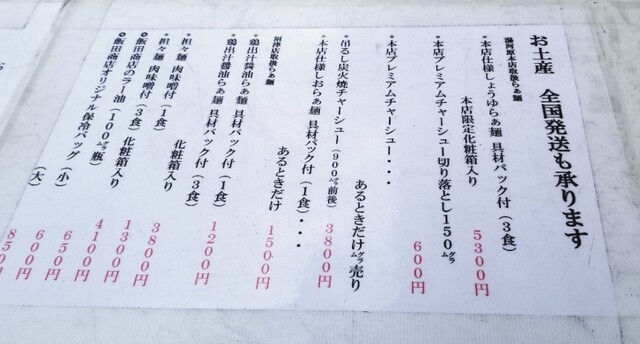 お土産 全国発送も承ります
湯河原本店取扱らぁ麺
・本店仕様しょうゆらぁ麺 具材パック付（３食）
本店限定化粧箱入り 5300円
・本店プレミアムチャーシュー切り落とし150㌘ 600円
・本店プレミアムチャーシュー・・・あるときだけ㌘売り
・吊るし炭火焼チャーシュー（900㌘前後） 3800円
・本店仕様しおらぁ麺 具材パック付（１食）・・・あるときだけ 1500円
沼津店取扱らぁ麺
・鶏出汁醤油らぁ麺 具材パック付（１食） 1200円
・鶏出汁醤油らぁ麺 具材パック付（３食） 化粧箱入り 3800円
・担々麺 肉味噌付（１食） 1300円
・担々麺 肉味噌付（３食） 化粧箱入り 4100円
◎飯田商店のラー油（100㌘瓶） 650円
◎飯田商店オリジナル保冷バッグ（小） 600円
（大） 850円